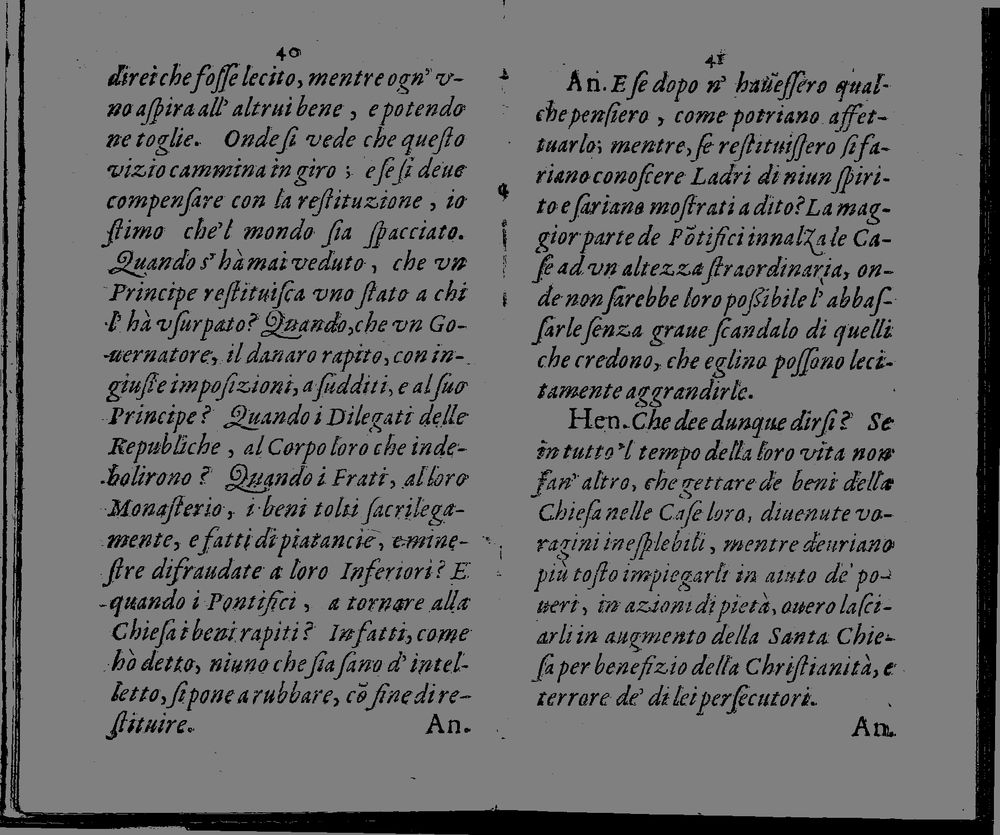 40
direi che foſſe lecito, mentre ogn' v-
no aſpira all' altrui bene , e potendo
ne toglie. Onde ſi vede che queſto
vizio cammina in giro ; e ſe ſi deue
compenſare con la reſtituzione , io
ſtimo che'l mondo ſia ſpacciato.
Quando s' hà mai veduto , che vn
Principe reſtituiſca vno ſtato a chi
l' hà vſurpato? Quando, che vn Go-
uernatore, il danaro rapito, con in-
giuſte impoſizioni, a ſudditi, e al ſuo
Principe? Quando i Dilegati delle
Republiche , al Corpo loro che inde-
bolirono ? Quando i Frati, al loro
Monaſterio, i beni tolti ſacrilega-
mente, e fatti di piatancie, e mine-
ſtre difraudate a loro Inferiori? E
quando i Pontifici , a tornare alla
Chieſa i beni rapiti? Infatti, come
hò detto, niuno che ſia ſano d' intel-
letto, ſi pone a rubbare, cõ fine di re-
ſtituire.
An.
41
An. E ſe dopo n' haũeſſero qual-
che penſiero , come potriano affet-
tuarlo; mentre, ſe reſtituiſſero ſi fa-
riano conoſcere Ladri di niun ſpiri-
to e ſariano moſtrati a dito? La mag-
gior parte de Põtifici innalza le Ca-
ſe ad vn altezza ſtraordinaria, on-
de non ſarebbe loro poſſibile l' abbaſ-
ſarle ſenza graue ſcandalo di quelli
che credono, che eglino poſſono leci-
tamente aggrandirle.
Hen. Che dee dunque dirſi? Se
in tutto 'l tempo della loro vita non
fan' altro, che gettare de beni della
Chieſa nelle Caſe loro, diuenute vo-
ragini ineſplebili, mentre deuriano
più toſto impiegarli in aiuto de' po-
ueri, in azioni di pietà, ouero laſci-
arli in augmento della Santa Chie-
ſa per benefizio della Chriſtianità, e
terrore de' di lei perſecutori.
An.